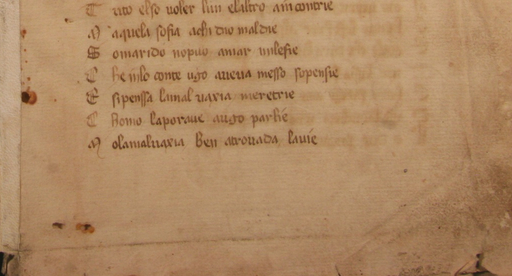 T uto elso voler lun elaltro aincontrie
M aquela sofia achi duo maldie
S omarido nopuo amar unlesie
C he inlo conte ugo aueua messo sopensie
E sipenssa lamaluaxia meretrie
C homo laporaue augo parlie
M olamaluaxia Ben atrouada lauie